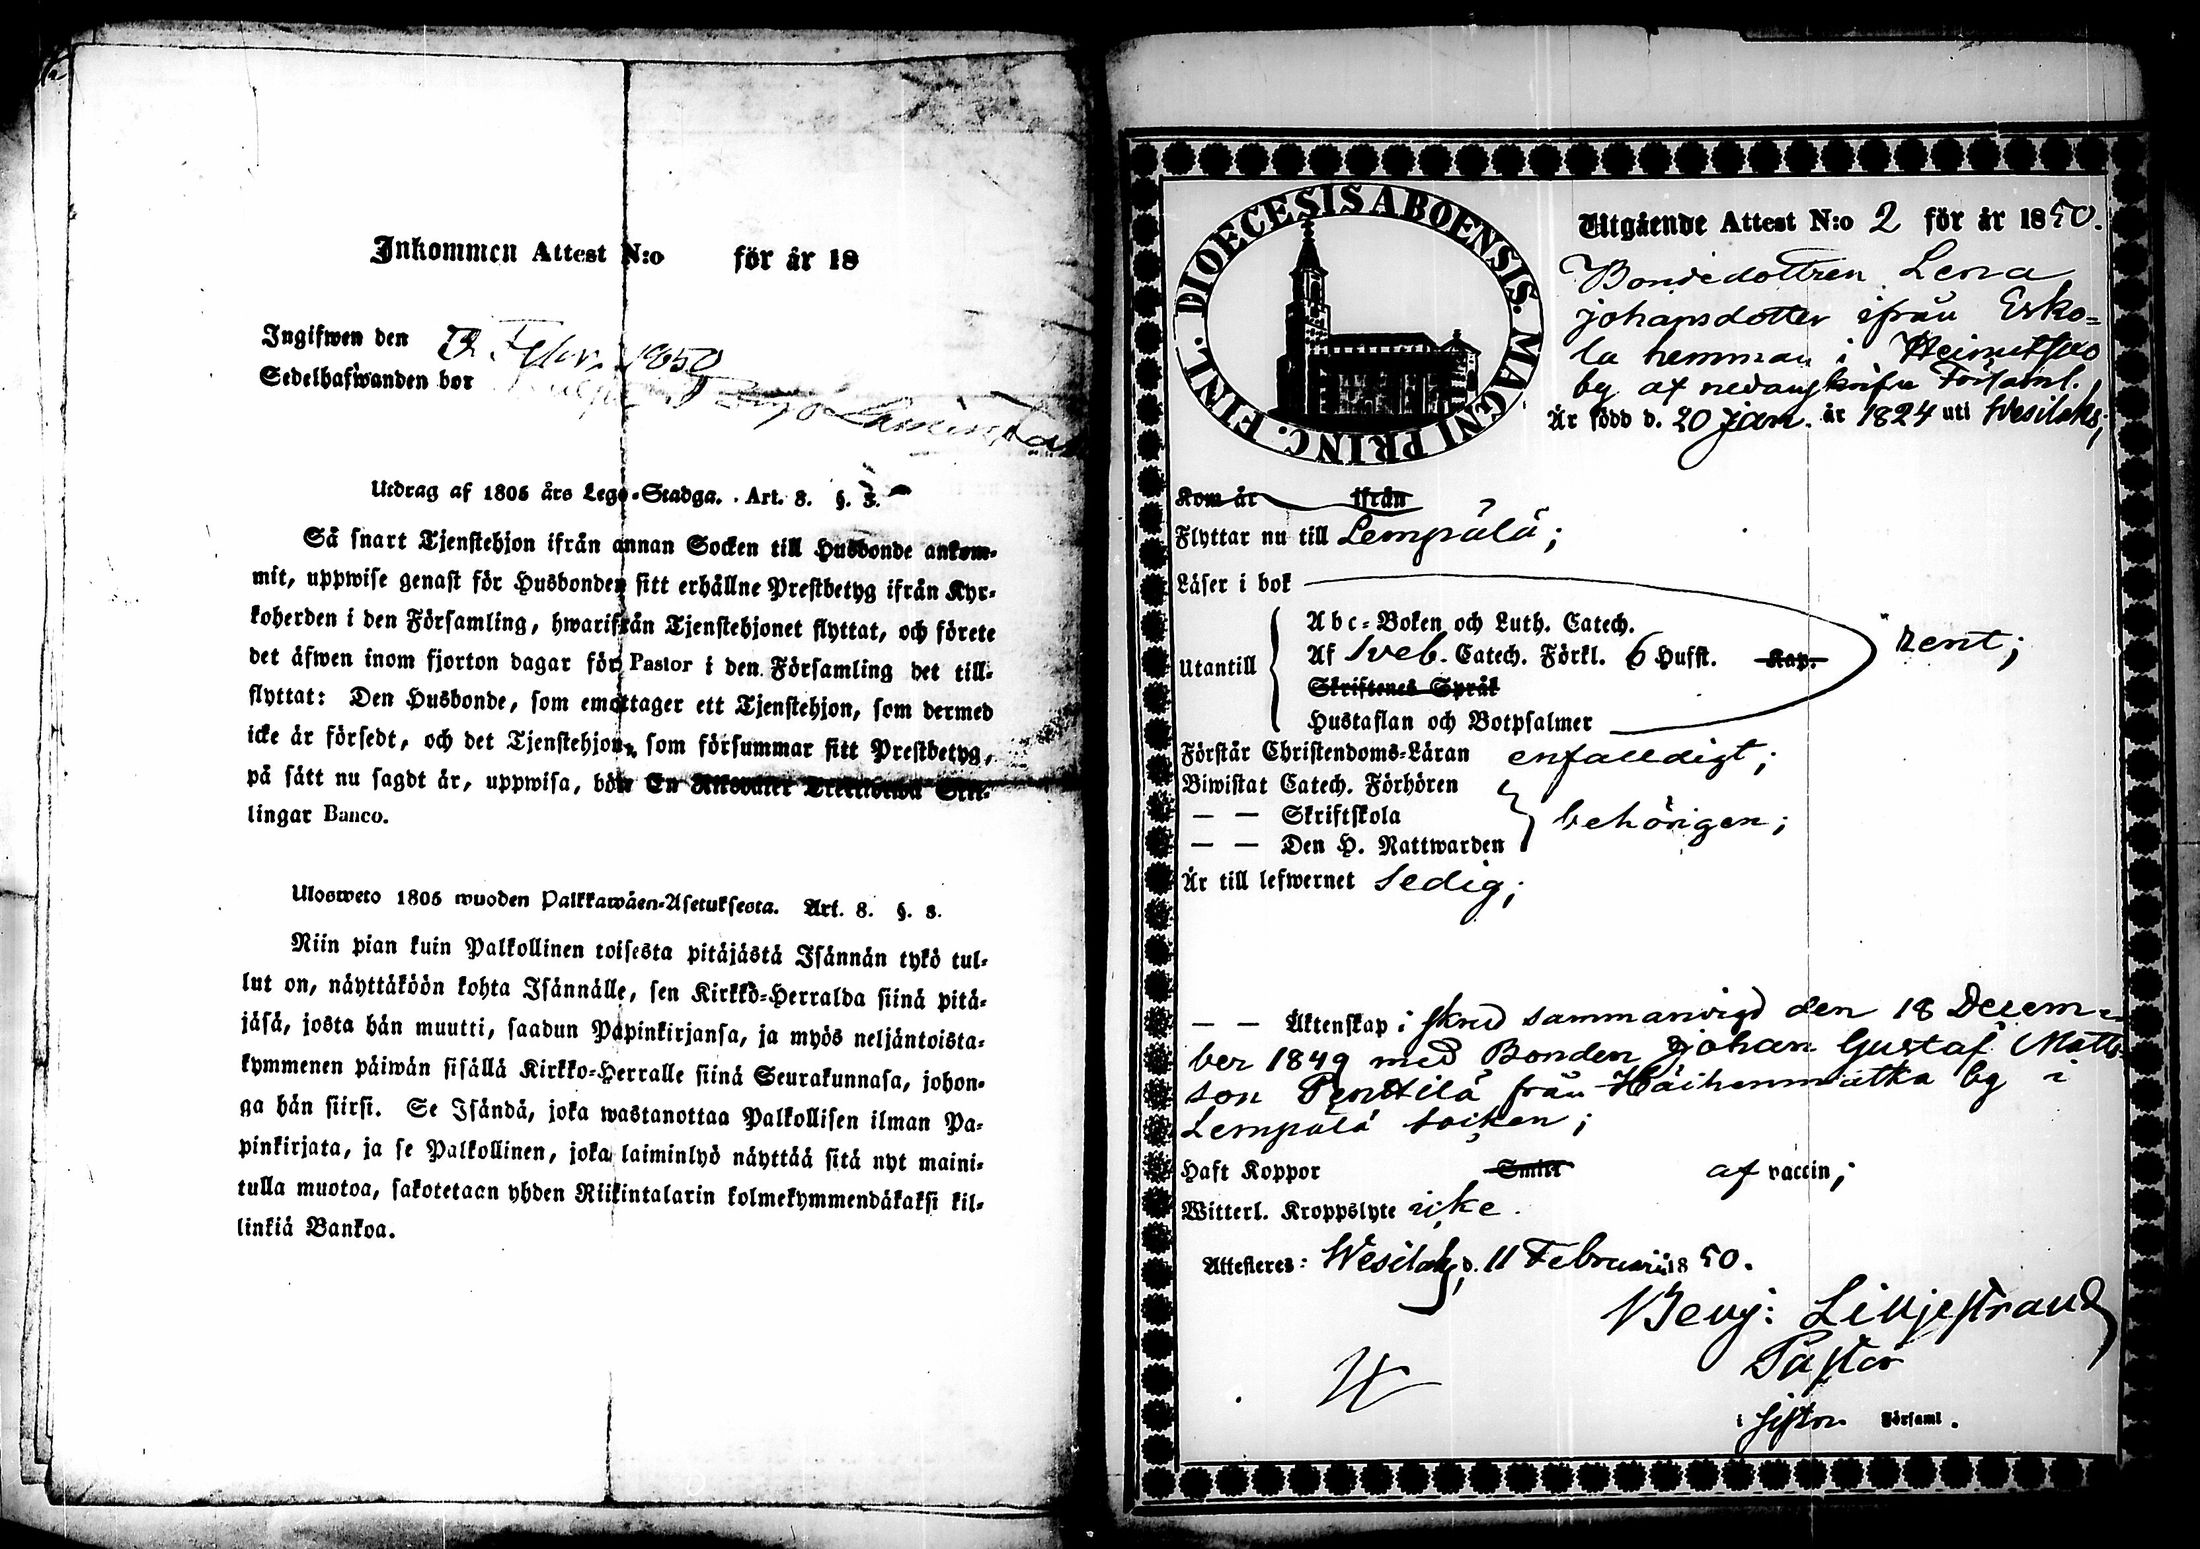 Inkommen Attest N:o för år 18
Ingifwen den Febr. 1850
Sedelhafwanden bor
Utdrag af 1805 års Lego-Stadga. Art. 8. §. 3.
Så snart Tjenstehjon ifrån annan Socken till Husbonde ankom-
mit, uppwise genast för Husbonden sitt erhållne Prestbetyg ifrån Kyr-
koherden i den Församling, hwarifrån Tjenstehjonet flyttat, och förete
det äfwen inom fjorton dagar för Pastor i den Församling det till-
flyttat: Den Husbonde, som emottager ett Tjenstehjon, som dermed
icke är försedt, och det Tjenstehjon, som försummar sitt Prestbetyg,
på sätt nu sagdt är, uppwisa, böte En Riksdaler Skil-
lingar Banco.
Ulosweto 1805 wuoden Palkkawäen-Asetuksesta. Art. 8. §. 3.
Niin pian kuin Palkollinen toisesta pitäjästä Isännän tykö tul-
lut on, näyttäköön kohta Isännälle, sen Kirkko-Herralda siinä pitä-
jäsä, josta hän muutti, saadun Papinkirjansa, ja myös neljäntoista-
kymmenen päiwän sisällä Kirkko-Herralle siinä Seurakunnasa, johon-
ga hän siirsi. Se Isändä, joka wastanottaa Palkollisen ilman Pa-
pinkirjata, ja se Palkollinen, joka laiminlyö näyttää sitä nyt maini-
tulla muotoa, sakotetaan yhden Riikintalarin kolmekymmendäkaksi kil-
linkiä Bankoa.
DIOECESIS ABOENSIS. MAGNI PRINC. FINL.
Utgående Attest N:o 2 för år 1850.
Bondedottren Lena
Johansdotter ifrån Esko-
la hemman i
by af nedanskrifne Församl.
Är född d. 20 Jan. år 1824 uti Wesilaks;
Kom år ifrån
Flyttar nu till Lempälä;
Läser i bok
Abc-Boken och Luth. Catech.
Utantill Af Sveb. Catech. Förkl. 6 Hufst. Kap. rent;
Skriftenes Språk
Hustaflan och Botpsalmer
Förstår Christendoms-Läran enfalldigt;
Biwistat Catech. Förhören
— — Skriftskola behörigen;
— — Den H. Nattwarden
Är till lefwernet sedig;
— — Äktenskap: sammanvigd den 18 Decem-
ber 1849 med Bonden Johan Gustaf Matts-
son Penttilä från Häihenmatka by i
Lempälä socken;
Haft Koppor Smitt af vaccin;
Witterl. Kroppslyte icke.
Attesteres: Wesilaks, d. 11 Februarii 1850.
Benj: Lilljestrand
Pastor
i Församl.